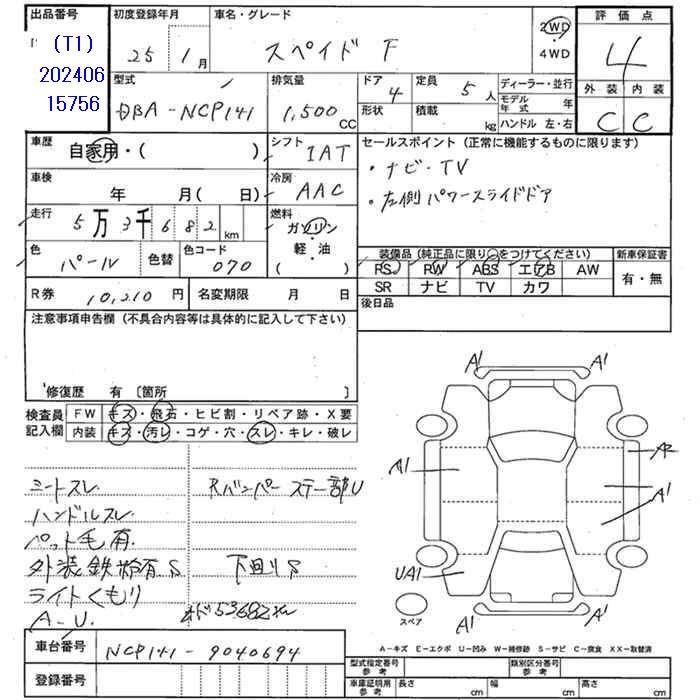 出品番号 初度登録年月 車名・グレード 評価点
(T1)
202406
15756
25年 1月 スペイド F 2WD・4WD 4
型式 排気量 ドア 定員 ディーラー・並行 外装 内装
DBA-NCP141 1,500cc 4 5人 モデル年式 年 C C
形状 積載 kg ハンドル 左・右
車歴 自家用・( ) シフト IAT セールスポイント(正常に機能するものに限ります)
・ナビ・TV
・左側パワースライドドア
車検 年 月( 日) 冷房 AAC
走行 5万3千682km 燃料 ガソリン・軽・油( )
色 パール 色替 色コード 070
装備品(純正品に限り○をつけてください) 新車保証書
RS RW ABS エアB AW 有・無
SR ナビ TV カワ
R券 10,210円 名変期限 月 日 後日品
注意事項申告欄(不具合内容等は具体的に記入して下さい)
修復歴 有〔箇所 〕
検査員記入欄 FW キズ・飛石・ヒビ割・リペア跡・X要
内装 キズ・汚レ・コゲ・穴・スレ・キレ・破レ
A1 A1
A1 A2
A1
UA1
A1 A1
スペア
シートスレ Rバンパーステー部U
ハンドルスレ
ペット毛有
外装鉄粉有 S 下回りS
ライトくもり
A-U. オド53682km
A-キズ E-エクボ U-凹み W-補修跡 S-サビ C-腐食 XX-取替済
車台番号 NCP141-9040694
登録番号
型式指定番号 参考 類別区分番号 参考
車庫証明用 参考 長さ cm 幅 cm 高さ cm